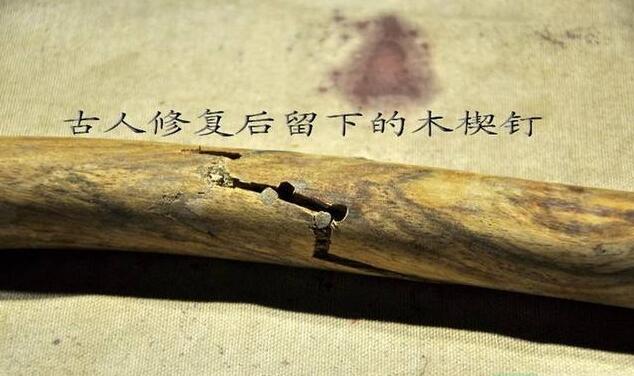 古人修复后留下的木楔钉